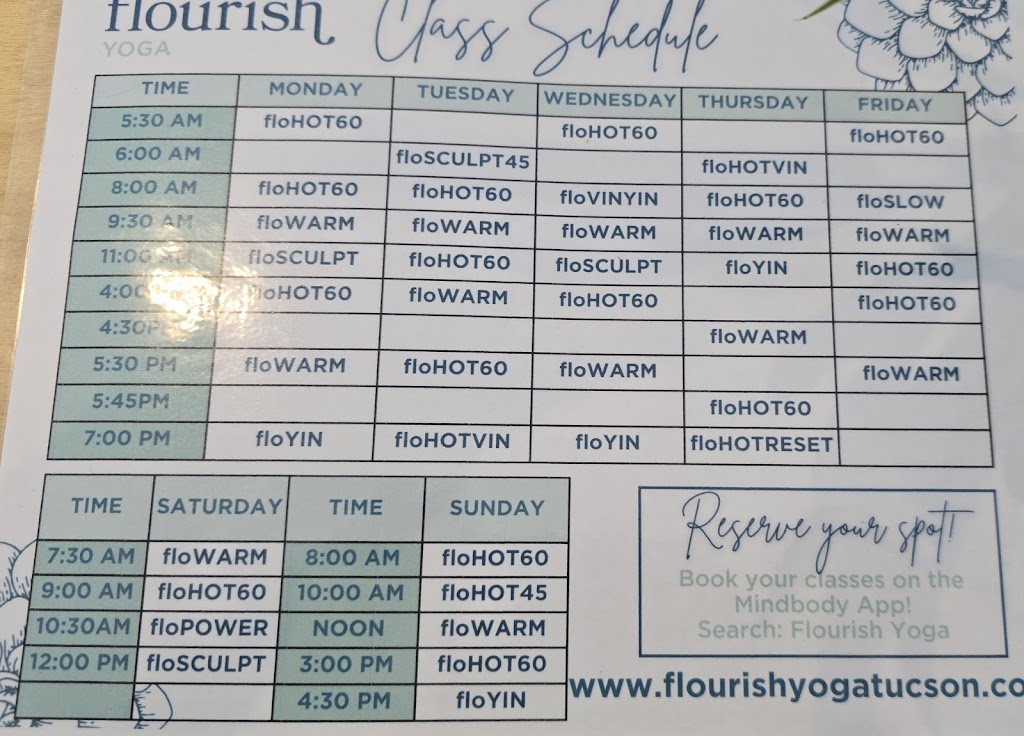 flourish
YOGA
Class Schedule
TIME MONDAY TUESDAY WEDNESDAY THURSDAY FRIDAY
5:30 AM floHOT60 floHOT60 floHOT60
6:00 AM floSCULPT45 floHOTVIN
8:00 AM floHOT60 floHOT60 floVINYIN floHOT60 floSLOW
9:30 AM floWARM floWARM floWARM floWARM floWARM
11:00 AM floSCULPT floHOT60 floSCULPT floYIN floHOT60
4:00 floHOT60 floWARM floHOT60 floHOT60
4:30PM floWARM
5:30 PM floWARM floHOT60 floWARM floWARM
5:45PM floHOT60
7:00 PM floYIN floHOTVIN floYIN floHOTRESET
TIME SATURDAY TIME SUNDAY
7:30 AM floWARM 8:00 AM floHOT60
9:00 AM floHOT60 10:00 AM floHOT45
10:30AM floPOWER NOON floWARM
12:00 PM floSCULPT 3:00 PM floHOT60
4:30 PM floYIN
Reserve your spot!
Book your classes on the
Mindbody App!
Search: Flourish Yoga
www.flourishyogatucson.co